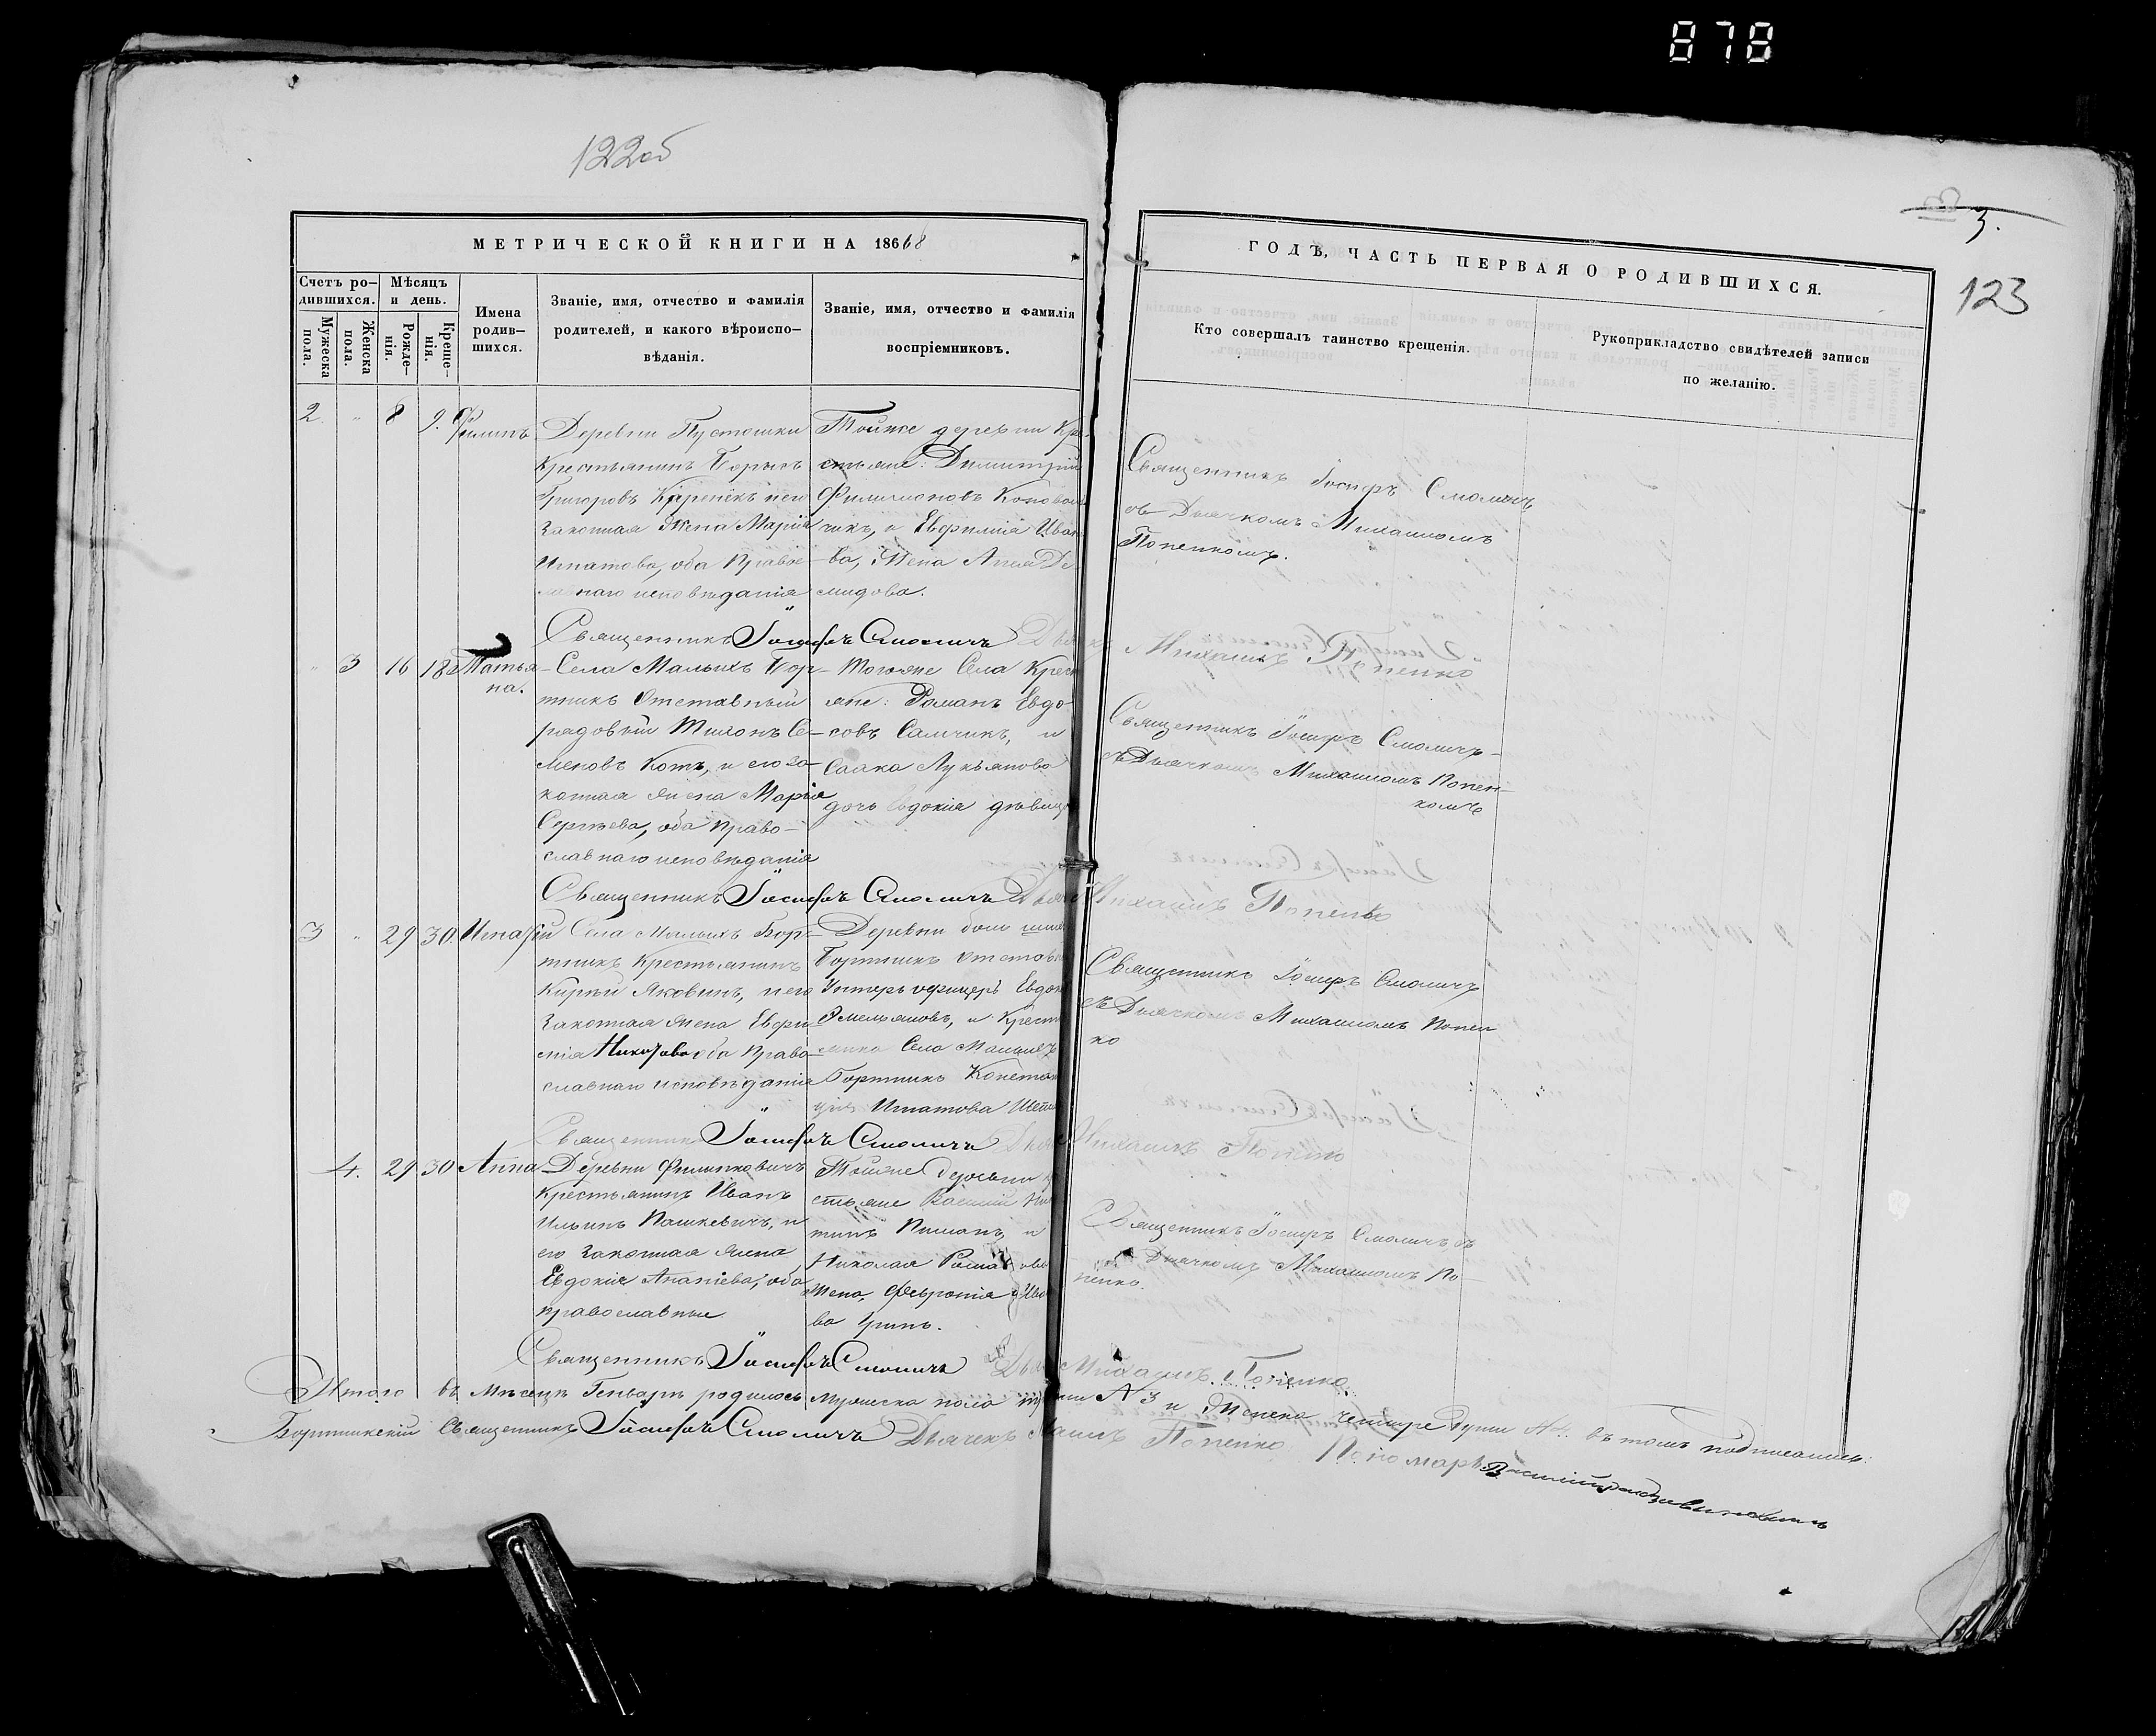 878
122об
3.
123
МЕТРИЧЕСКОЙ КНИГИ НА 18668
ГОДЪ, ЧАСТЬ ПЕРВАЯ О РОДИВШИХСЯ.
Счетъ ро–
дившихся.
Мужеска
пола.
Женска
пола.
Мѣсяцъ
и день.
Рожде–
нія.
Креще–
нія.
Имена
родив–
шихся.
Званіе, имя, отчество и фамилія
родителей, и какого вѣроиспо–
вѣданія.
Званіе, имя, отчество и фамилія
воспріемниковъ.
Кто совершалъ таинство крещенія.
Рукоприкладство свидѣтелей записи
по желанію.
2 " 8 9. Филипъ
Деревни Пустошки
Крестьянинъ Борисъ
Григоровъ его
Законная Жена Марія
Игнатова, оба Право–
славнаго исповѣданія
Тойже деревни Кре–
стьяне: Димитрій
Филимоновъ Коновал
чикъ, и Евфимія Иван
ва, Жена Де–
мидова.
Священникъ Іосифъ Смоличъ
съ Дьячкомъ Михаиломъ
Попенкомъ.
Священникъ Іосифъ Смоличъ Дьяч
Михаилъ Попенко
" 3 16 18 Татья–
на.
Села Малыхъ Бор–
тникъ Отставный
рядовый Тихонъ Се–
меновъ Котъ, и его за–
конная жена Марія
Сергѣева, оба право–
славнаго исповѣданія
Тогоже Села Крест
яне: Романъ Евдо
совъ Самчикъ, и
Савка Лукьянова
дочь Евдокія дѣвица
Священникъ Іосифъ Смоличъ
съ Дьячкомъ Михаиломъ Попен–
комъ
Священникъ Іосифъ Смоличъ Дьяч
Михаилъ Попенко
3 " 29 30. Игнатій
Села Малыхъ Бор–
тникъ Крестьянинъ
Кирѣй Яковинъ, и его
Законная жена Евфи–
мія оба Право–
славнаго исповѣданія
Деревни
Бортникъ Отставн
Унтеръ офицеръ Евдок
Емельяновъ, и Крест
янка Села Малыхъ
Бортникъ Констан
ція Игнатова
Священникъ Іосифъ Смоличъ
съ Дьячкомъ Михаиломъ Попен
ко
Священникъ Іосифъ Смоличъ Дья
Михаилъ Попенко
4. 29 30 Анна
Деревни Филипковичъ
Крестьянинъ Иванъ
Ильинъ Пашкевичъ, и
его Законная жена
Евдокія Ананіева, оба
православные
Тойже деревни Кр
стьяне Василій Ни
тинъ и
Николая
Жена, Февронія Ива
ва
Священникъ Іосифъ Смоличъ съ
Дьячкомъ Михаиломъ По–
пенко.
Священникъ Іосифъ Смоличъ Дья
Михаилъ Попенко
Итого въ мѣсяцѣ Генварѣ родилось мужеска пола три № 3 и Женска четыре души № 4. въ томъ подписались:
Бортникскій Священникъ Іосифъ Смоличъ Дьячекъ Михаилъ Попенко Пономарь Василій